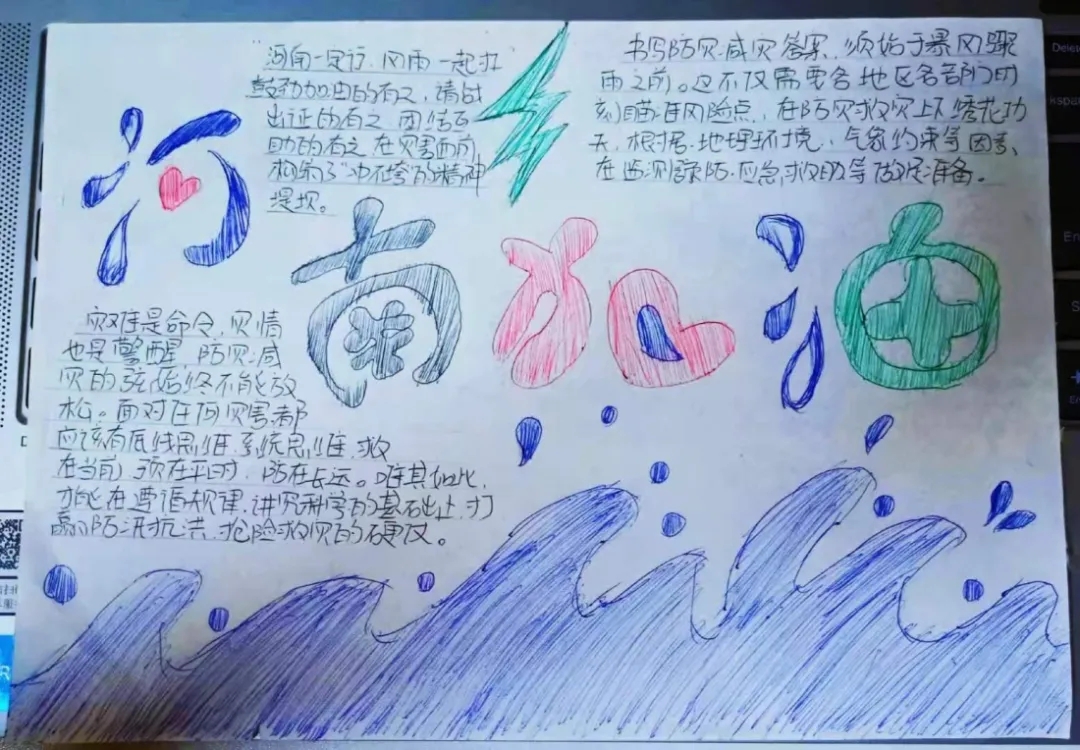 "河南一定行,风雨一起扛"
鼓劲加油的有之,请战
出征的有之,团结互
助的有之,在灾害面前,
构筑了"冲不垮"的精神
堤坝。
书写防灾减灾答案,须始于暴风骤
雨之前。这不仅需要各地区各部门时
刻瞄准风险点,在防灾救灾上下绣花功
夫,根据地理环境、气象约束等因素、
在监测预防、应急救助等做足准备。
河南加油
灾难是命令,灾情
也是警醒,防灾减
灾的弦始终不能放
松。面对任何灾害都
应该有底线思维、系统思维,救
在当前,预在平时,防在长远。唯其如此,
才能在遵循规律、讲究科学的基础上,打
赢防汛抗洪、抢险救灾的硬仗。
Dele
kspa
En